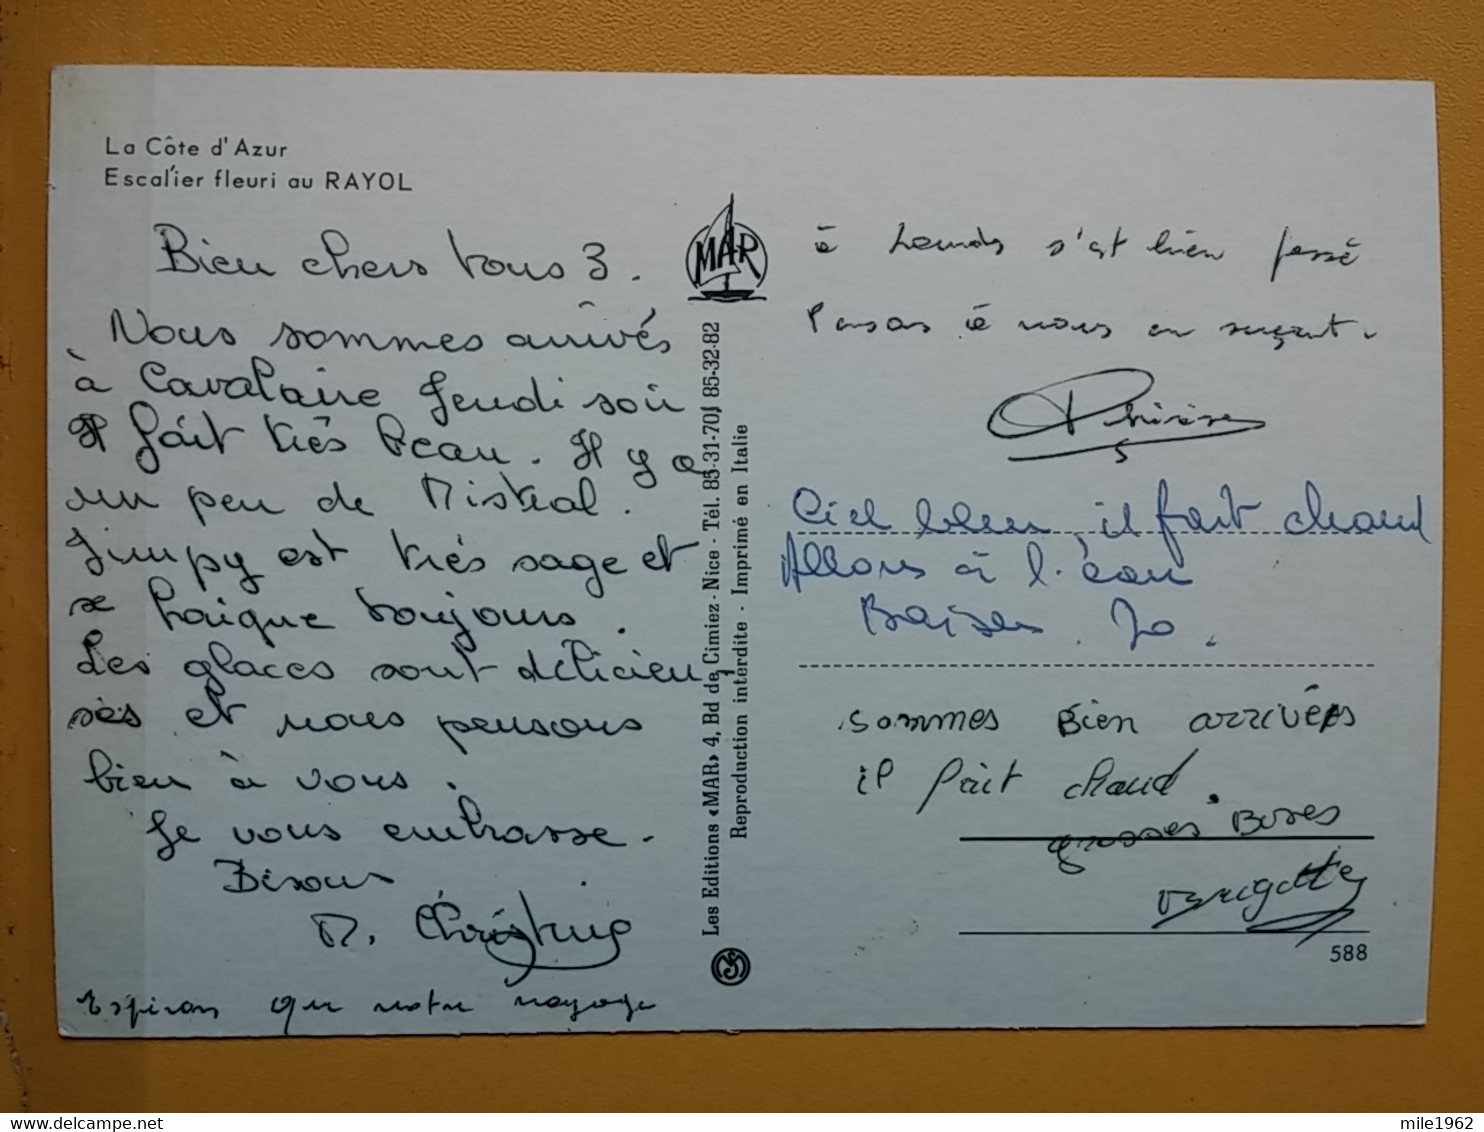 La Côte d'Azur
Escalier fleuri au RAYOL
Bien chers tous 3.
Nous sommes arrivés
à Cavalaire Jeudi soir
Il fait très beau. Il y a
un peu de Mistral.
Jimpy est très sage et
se baigne toujours.
Les glaces sont délicieu,
ses et nous pensons
bien à vous.
Je vous embrasse.
Bisous
M. Christine
Espérons que notre voyage
MAR
Les Editions «MAR» 4, Bd de Cimiez - Nice - Tél. 85-31-70/ 85-32-82
Reproduction interdite - Imprimé en Italie
à s'est bien passé
Pensons à nous en
Thérèse
Ciel bleu, il fait chaud
Allons à l'eau
Baisers. Jo.
sommes Bien arrivées
il fait chaud.
grosses Bises
Brigitte
588
mile1962